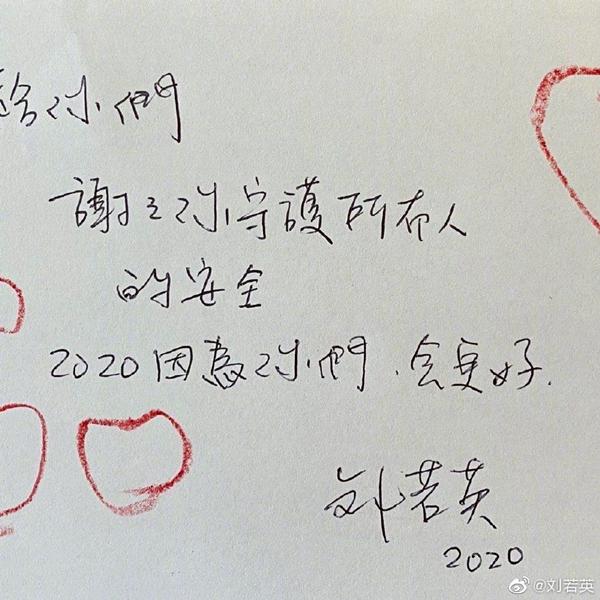 給你們
謝々你守護所有人
的安全
2020因為你們.会更好.
刘若英
2020
@刘若英